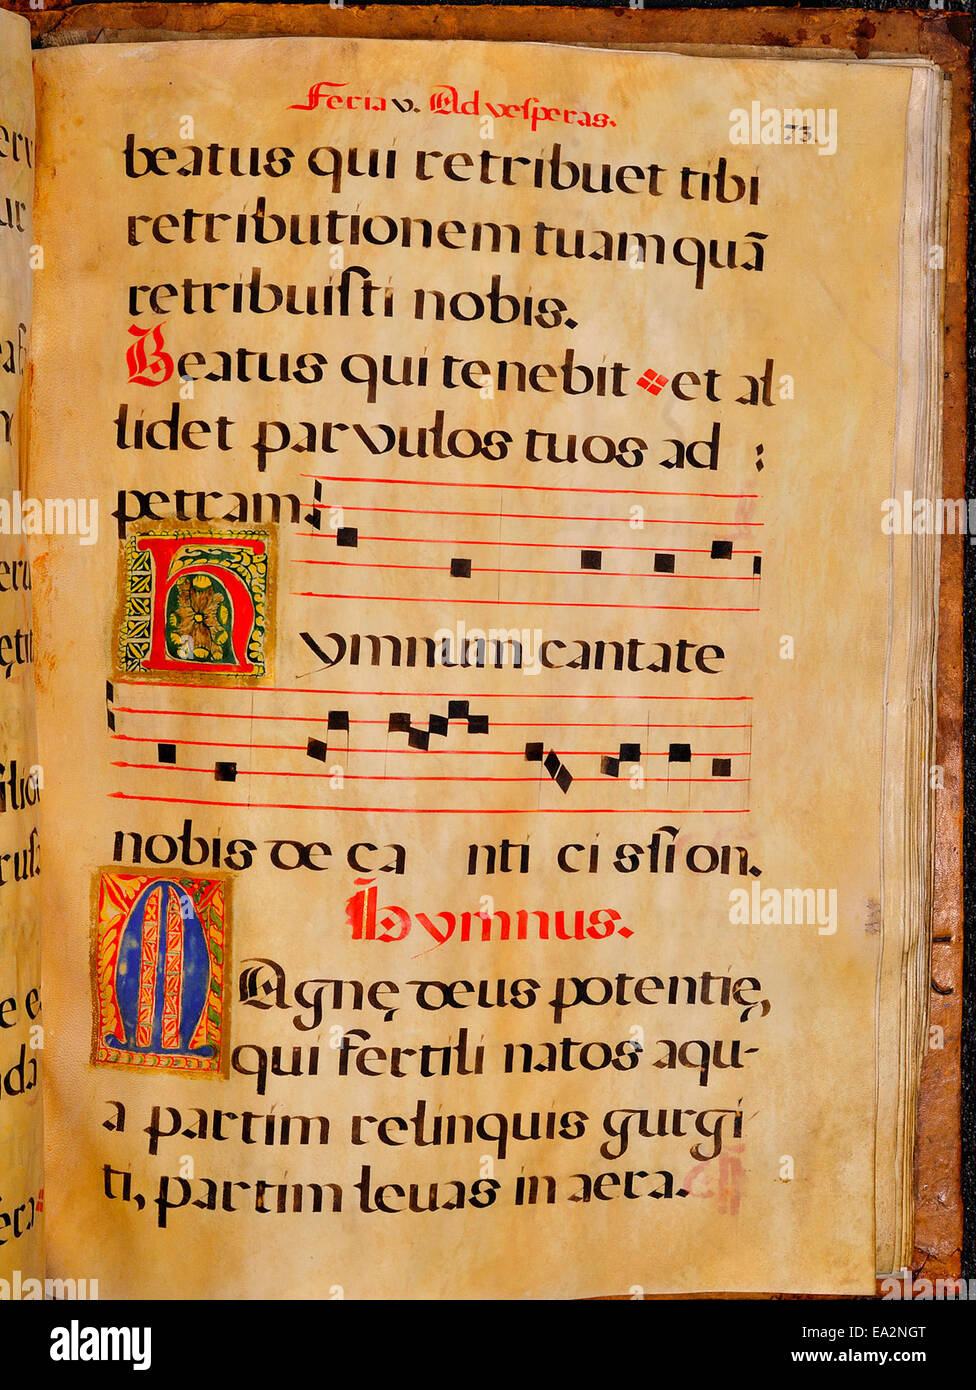 Feria v. Ad veſperas.
73.
beatus qui retribuet tibi
retributionem tuam quā
retribuiſti nobis.
Beatus qui tenebit et al
lidet parvulos tuos ad
petram.
Hymnum cantate
nobis de ca nti ci sſion.
Hymnus.
MAgnę deus potentię,
qui fertili natos aqu-
a partim relinquis gurgi
ti, partim levas in aera.
alamy
Image ID: EA2NGT
www.alamy.com